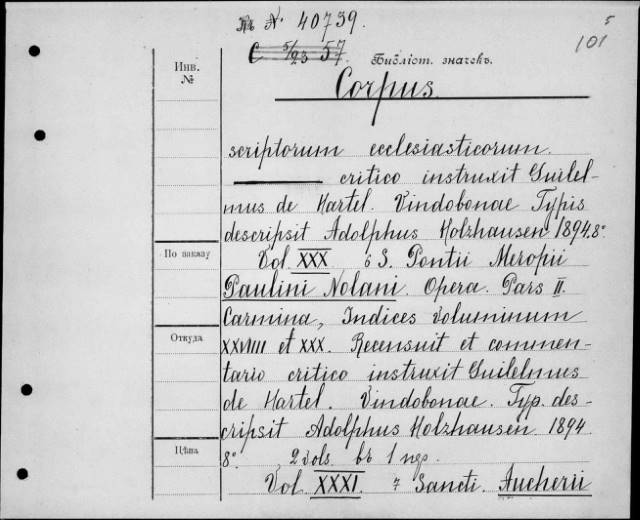 № 40739.
5
101
C 5/23 57.
Библіот. значекъ.
Инв.
№
Corpus.
scriptorum ecclesiasticorum.
critico instruxit Guilel-
mus de Hartel. Vindobonae Typis
descripsit Adolphus Holzhausen 1894. 8°
По заказу
Vol. XXX 6 S. Pontii Meropii
Paulini Nolani. Opera. Pars II.
Carmina, Indices voluminum
Откуда
XXVIIII et XXX. Recensuit et commen-
tario critico instruxit Guilelmus
de Hartel. Vindobonae. Typ. des-
cripsit Adolphus Holzhausen 1894
Цѣна
8°, 2 vols br 1 пер.
Vol XXXI. 7 Sancti. Aucherii